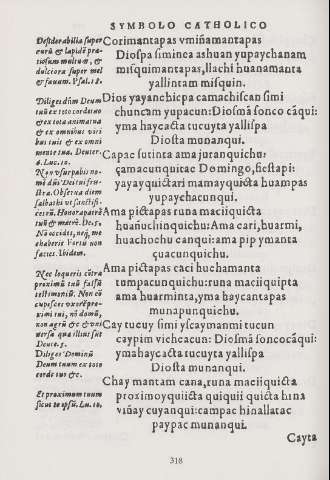 SYMBOLO CATHOLICO
Desiderabilia super
aurũ & lapidẽ pra-
tiosum multum, &
dulciora super mel
& fauum. Psal. 18.
Diliges dñm Deum
tuũ ex toto corde tuo
& ex tota anima tua
& ex omnibus viri
bus tuis & ex omni
mente tua. Deuter.
6. Luc. 10.
Non vsurpabis no-
mẽ dñi Dei tui fru-
stra. Obserua diem
sabbathi vt sanctifi-
ces eũ. Honora patrẽ
tuũ & matrẽ. De. 5.
Nõ occides, neq̃, me
chaberis Furtũ non
facies. Ibidem.
Nec loqueris cõtra
proximũ tuũ falsũ
testimoniũ. Non cõ
cupisces vxorẽ pro-
ximi tui, nõ domũ,
non agrũ &c & vni
uersa quæ illius sunt
Deute. 5.
Diliges Dominũ
Deum tuum ex toto
corde tuo &c.
Et proximum tuum
sicut te ipsũ. Lu. 10.
Corimantapas vmiñamantapas
Diospa siminca ashuan yupaychanam
misquimantapas, llachi huanamanta
yallintam misquin.
Dios yayanchicpa camachiscan simi
chuncam yupacun: Diosmã sonco cãqui:
yma haycacta tucuyta yallispa
Diosta munanqui.
Capac sutinta ama juranquichu:
çamacunquitac Domingo, fiestapi:
yayayquictari mamayquicta huampas
yupaychacunqui.
Ama pictapas runa maciiquicta
huañuchinquichu: Ama cari, huarmi,
huachochu canqui: ama pip ymanta
çuacunquichu.
Ama pictapas caci huchamanta
tumpacunquichu: runa maciiquipta
ama huarminta, yma haycantapas
munapunquichu.
Cay tucuy simi yscaymanmi tucun
caypim vichcacun: Diosmã soncocãqui:
ymahaycacta tucuyta yallispa
Diosta munanqui.
Chay mantam cana, runa maciiquicta
proximoyquicta quiquii quicta hina
viñay cuyanqui: campac hinallatac
paypac munanqui.
Cayta
318